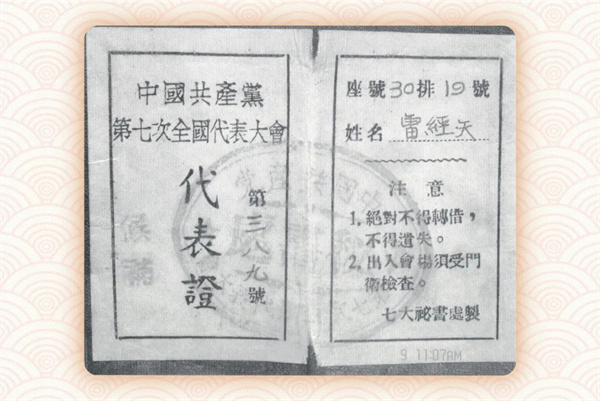 中國共產黨
第七次全國代表大會
代表證
第三八九號
候補
座號30排19號
姓名 雷經天
注意
1. 絕對不得轉借，
不得遺失。
2. 出入會場須受門
衛檢查。
七大祕書處製
9 11:07AM